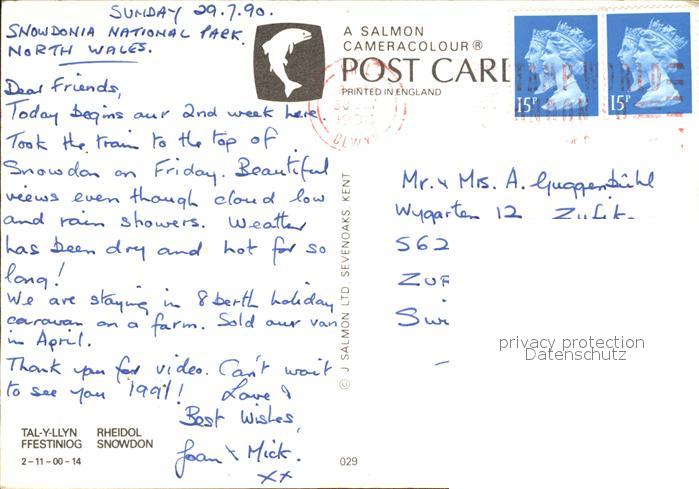 SUNDAY 29.7.90.
SNOWDONIA NATIONAL PARK.
NORTH WALES.
Dear Friends,
Today begins our 2nd week here.
Took the train to the top of
Snowdon on Friday. Beautiful
views even though cloud low
and rain showers. Weather
has been dry and hot for so
long!
We are staying in 8 berth holiday
caravan on a farm. Sold our van
in April.
Thank you for video. Can't wait
to see you '1991! Love &
Best Wishes,
Joan & Mick.
xx
TAL-Y-LLYN RHEIDOL
FFESTINIOG SNOWDON
2-11-00-14
A SALMON
CAMERACOLOUR®
POST CARD
PRINTED IN ENGLAND
© J SALMON LTD. SEVENOAKS KENT
029
15P 15P
1990
CLWYD
Mr. & Mrs. A. Guggenbühl
Wygarten 12
562
ZUF
Swi
privacy protection
Datenschutz